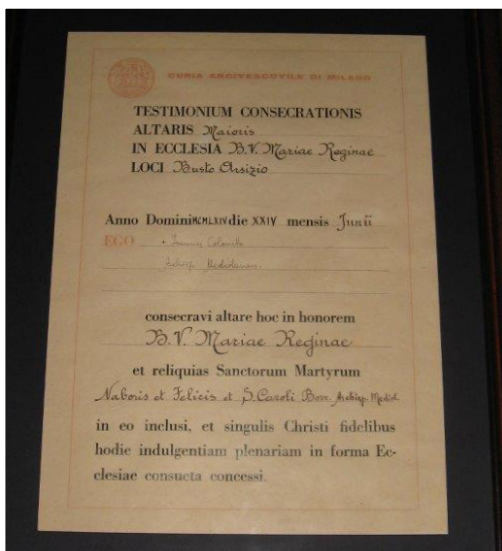 CURIA ARCIVESCOVILE DI MILANO
TESTIMONIUM CONSECRATIONIS
ALTARIS Maioris
IN ECCLESIA B.V. Mariae Reginae
LOCI Busto Arsizio
Anno Domini MCMLXIV die XXIV mensis Junii
EGO + Ioannes Colombo
consecravi altare hoc in honorem
B.V. Mariae Reginae
et reliquias Sanctorum Martyrum
Naboris et Felicis et S. Caroli Borr.
in eo inclusi, et singulis Christi fidelibus
hodie indulgentiam plenariam in forma Ec-
clesiae consucta concessi.